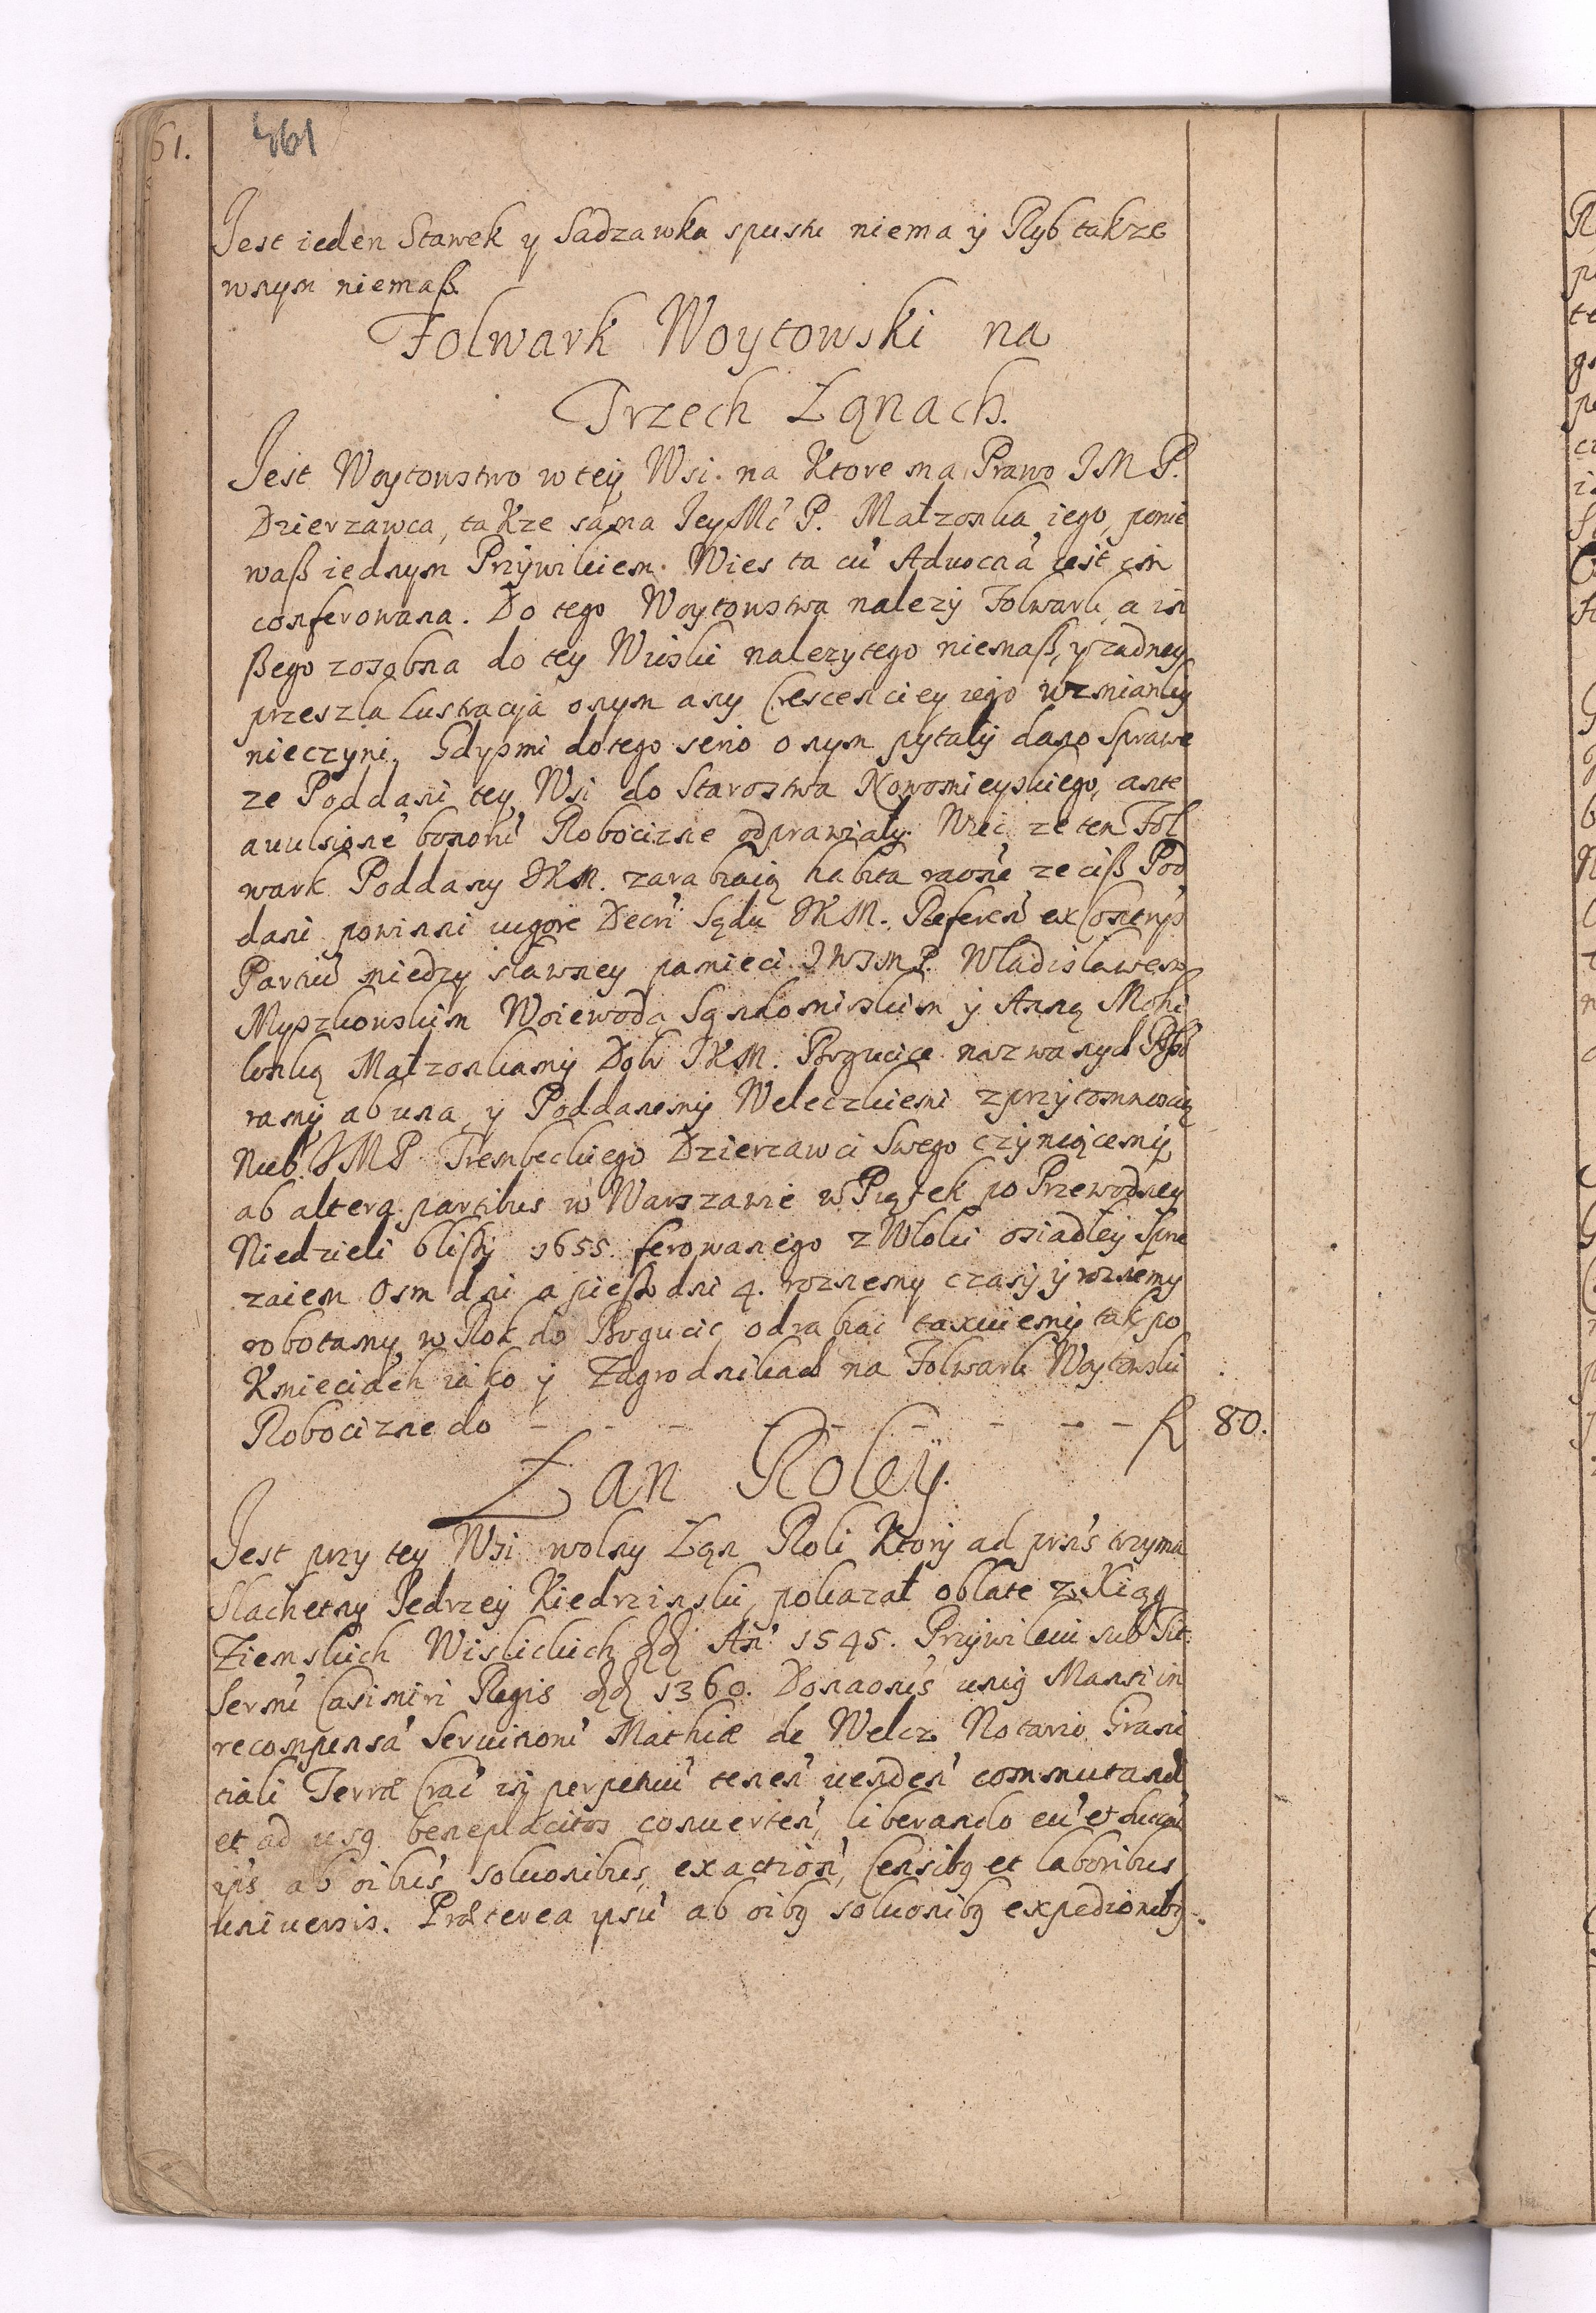 61.
461
Jest ieden Stawek y Sadzawka spustu niema ÿ Ryb takze
wnym niemaß.
Folwark Woytowski na
Trzech Łąnach.
Jest Woytowstwo w teÿ Wsi. na Ktore ma Prawo JMP.
Dzierzawca, takze sáma JeyMć P. Małzonka iego, ponie
waß iednym Prziÿwileiem. Wies ta cũ Aduocaã iest im
conferowana. Do tego Woytowstwa nalezÿ Folwark, a in
ßego zosobna do tey Wioski nalezytego niemaß, y zadney
przeszla Lustracÿa onym any Crescenciey iego wzmianky
nieczyni. Gdysmi dotego serio onym pytalÿ dano Sprawe
ze Poddani teÿ Wsi do Starostwa Nowomieyskiego, ante
auulsionẽ bonorũ Robocizne odprawialÿ. Wiec ze ten Fol
wark Poddany JKM. zarabiaią habita raoñe ze ciß Pod
dani powinni uigore Decri Sądu JKM. Referen̄ ex Contrs
Partiũ miedzÿ sławney pamieci JWJMP. Wladislawem
Myszkowskim Woiewodą Sąndomirskim ÿ Anną Mohi
lonką Małzonkamÿ Dobr JKM. Bogucice nazwanych
ramÿ ab una, y Poddanemÿ Weleczkiemi zprzÿtomnoscią
Nieb. JMP Trembeckiego Dzierzawci Swego czyniącemÿ
ab altera partibus w Warszawie w Piątek po Przewodney
Niedzieli blißÿ 1655. ferowanego z Wloki osiadleÿ Sprze
zaiem Osm dni a pießo dni 4. roznemy czasÿ ÿ roznemy
robotamÿ w Rok do Bogucic odrabiac taxuiemÿ tak po
Kmieciach iako ÿ Zagrodnikach na Folwark Woytowski
Robocizne do - - - - - - - - - - fl 80.
Łan Roleÿ.
Jest przy tey Wsi wolny Łąn Roli Ktorÿ ad prñs trzyma
Slachetny Jedrzeÿ Kiedrzinski, pokazał oblate z Xiąg
Ziemskich Wislickich dd An̄ 1545. Prziÿwileiu sub Tit:
Sermi Casimiri Regis dd 1360. Donaonis unig Mansi in
recompensã Seruitiorũ Mathiæ de Welcz Notario Grani
tiali Terræ Crac in perpetuũ tenen̄ uenden̄ commutand̄
et ad usq beneplacitos conuerten̄, liberando eũ et succ̄
ips̄ ab oibus solu̅onibus, exaction̄, Censibq et laboribus
uniuersis. Præterea ipsũ ab oibq soluonibq expedionibq.